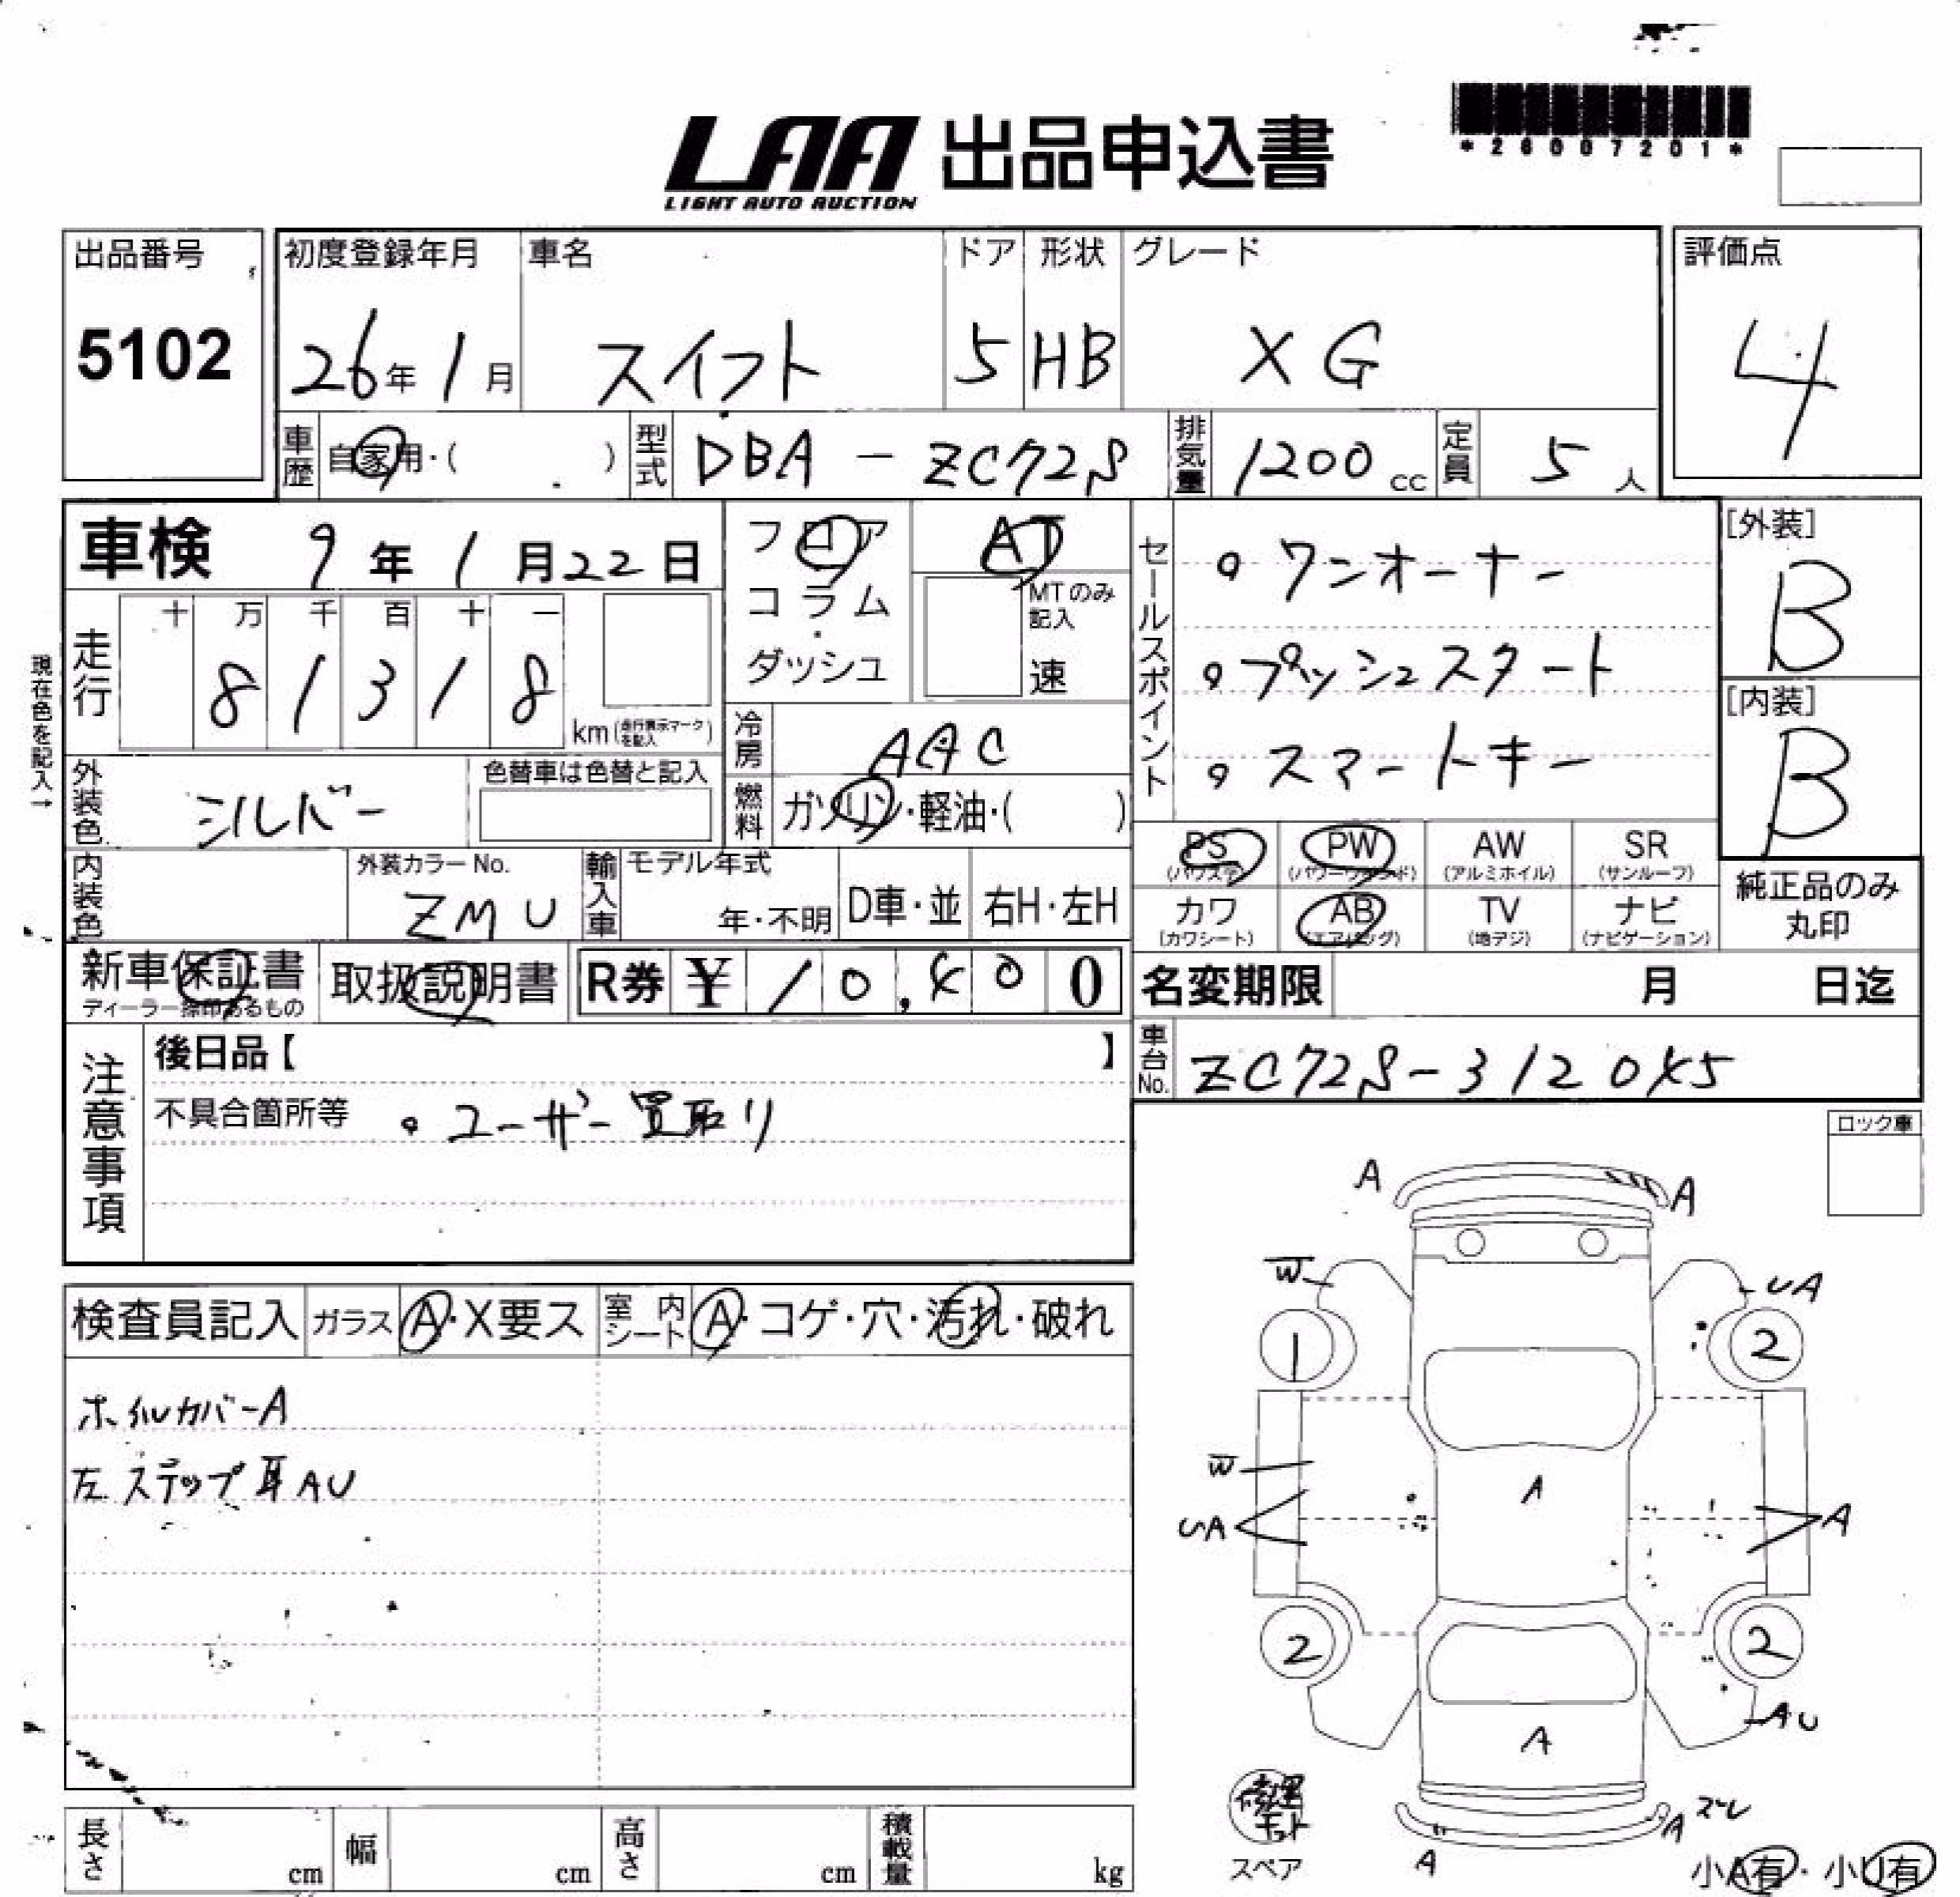 *26007201*
LAA 出品申込書
LIGHT AUTO AUCTION
出品番号
5102
初度登録年月 車名 ドア 形状 グレード
26年 1月 スイフト 5 HB XG
評価点
4
車歴 自家用・( ) 型式 DBA-ZC72S 排気量 1200cc 定員 5人
車検 9年 1月 22日
フロア
コラム
ダッシュ
AT
MTのみ記入
速
走行 十 万 千 百 十 一
8 1 3 1 8
km(走行表示マークを記入)
冷房 AAC
燃料 ガソリン・軽油・( )
現在色を記入→
外装色 シルバー 色替車は色替と記入
内装色 外装カラーNo. ZMU
輸入車 モデル年式 年・不明 D車・並 右H・左H
セールスポイント
。ワンオーナー
。プッシュスタート
。スマートキー
[外装]
B
[内装]
B
PS PW AW SR
(パワステ) (パワーウィンド) (アルミホイル) (サンルーフ)
カワ AB TV ナビ
(カワシート) (エアバッグ) (地デジ) (ナビゲーション)
純正品のみ
丸印
新車保証書
ディーラー捺印あるもの
取扱説明書
R券 ¥ 10,400
名変期限 月 日迄
車台No. ZC72S-312045
注意事項
後日品【 】
不具合箇所等 。ユーザー買取り
ロック車
検査員記入 ガラス A・X要ス 室内シート A・コゲ・穴・汚れ・破れ
ホイルカバーA
左ステップ耳AU
A A
W UA
1 2
W
UA A A
2 2
AU
A
修理キット
スペア
A A ズレ
小A有・小U有
長さ cm 幅 cm 高さ cm 積載量 kg